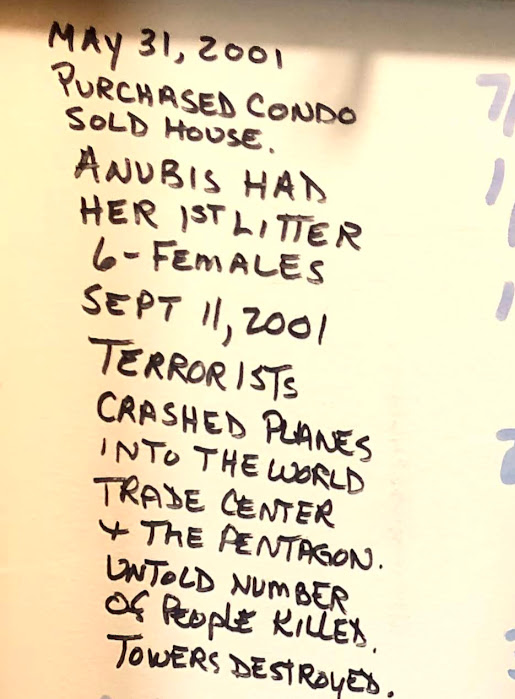 MAY 31, 2001
PURCHASED CONDO
SOLD HOUSE.
ANUBIS HAD
HER 1ST LITTER
6-FEMALES
SEPT 11, 2001
TERRORISTS
CRASHED PLANES
INTO THE WORLD
TRADE CENTER
+ THE PENTAGON.
UNTOLD NUMBER
OF PEOPLE KILLED.
TOWERS DESTROYED.